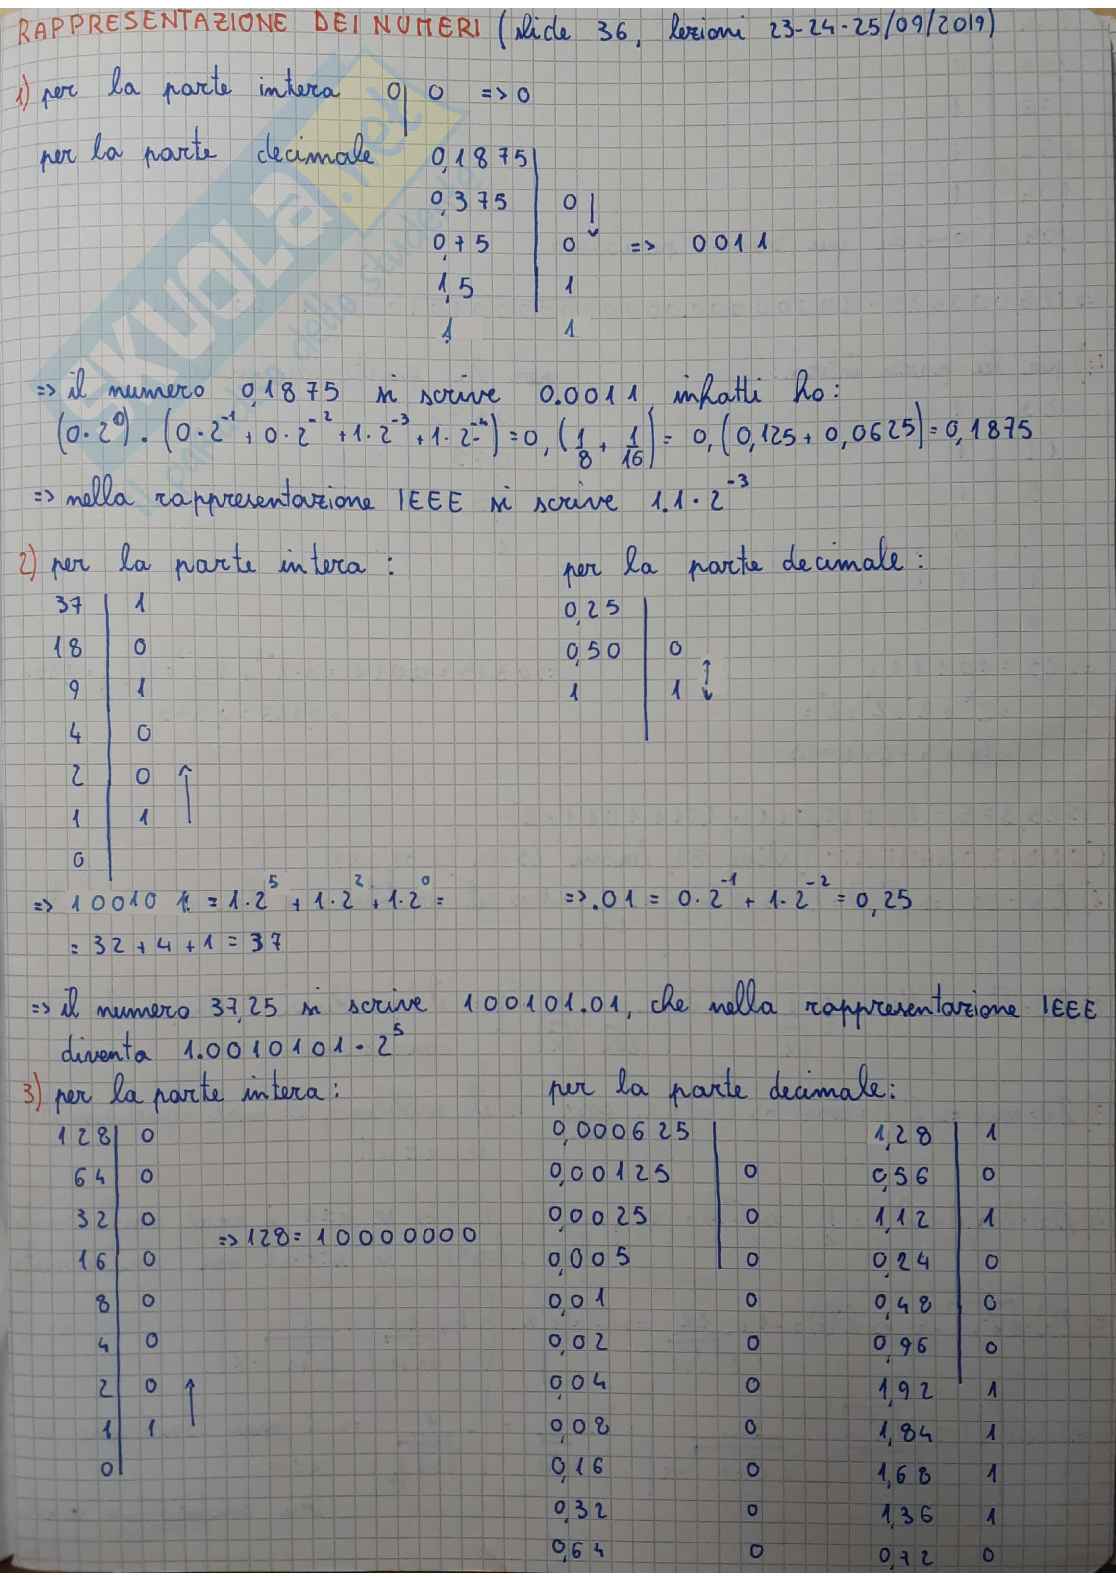 RAPPRESENTAZIONE DEI NUMERI (slide 36, lezioni 23-24-25/09/2019)
1) per la parte intera 0 | 0 => 0
per la parte decimale 0,1875 |
0,375 | 0 ↓
0,75 | 0 => 0011
1,5 | 1
1 1
=> il numero 0,1875 si scrive 0.0011 infatti ho:
(0·2⁰).(0·2⁻¹+0·2⁻²+1·2⁻³+1·2⁻⁴)=0,(1/8+1/16)= 0,(0,125+0,0625)=0,1875
=> nella rappresentazione IEEE si scrive 1.1·2⁻³
2) per la parte intera:
37 | 1
18 | 0
9 | 1
4 | 0
2 | 0 ↑
1 | 1
0 |
per la parte decimale:
0,25 |
0,50 | 0
1 | 1 ↕
=> 100101 = 1·2⁵ + 1·2² + 1·2⁰ =
= 32 + 4 + 1 = 37
=> .01 = 0·2⁻¹ + 1·2⁻² = 0,25
=> il numero 37,25 si scrive 100101.01, che nella rappresentazione IEEE
diventa 1.0010101·2⁵
3) per la parte intera:
128 | 0
64 | 0
32 | 0
=> 128=10000000
16 | 0
8 | 0
4 | 0
2 | 0 ↑
1 | 1
0 |
per la parte decimale:
0,000625 |
0,00125 | 0
0,0025 | 0
0,005 | 0
0,01 0
0,02 0
0,04 0
0,08 0
0,16 0
0,32 0
0,64 0
1,28 | 1
0,56 | 0
1,12 | 1
0,24 | 0
0,48 | 0
0,96 | 0
1,92 1
1,84 1
1,68 1
1,36 1
0,72 0
SKUOLA.net